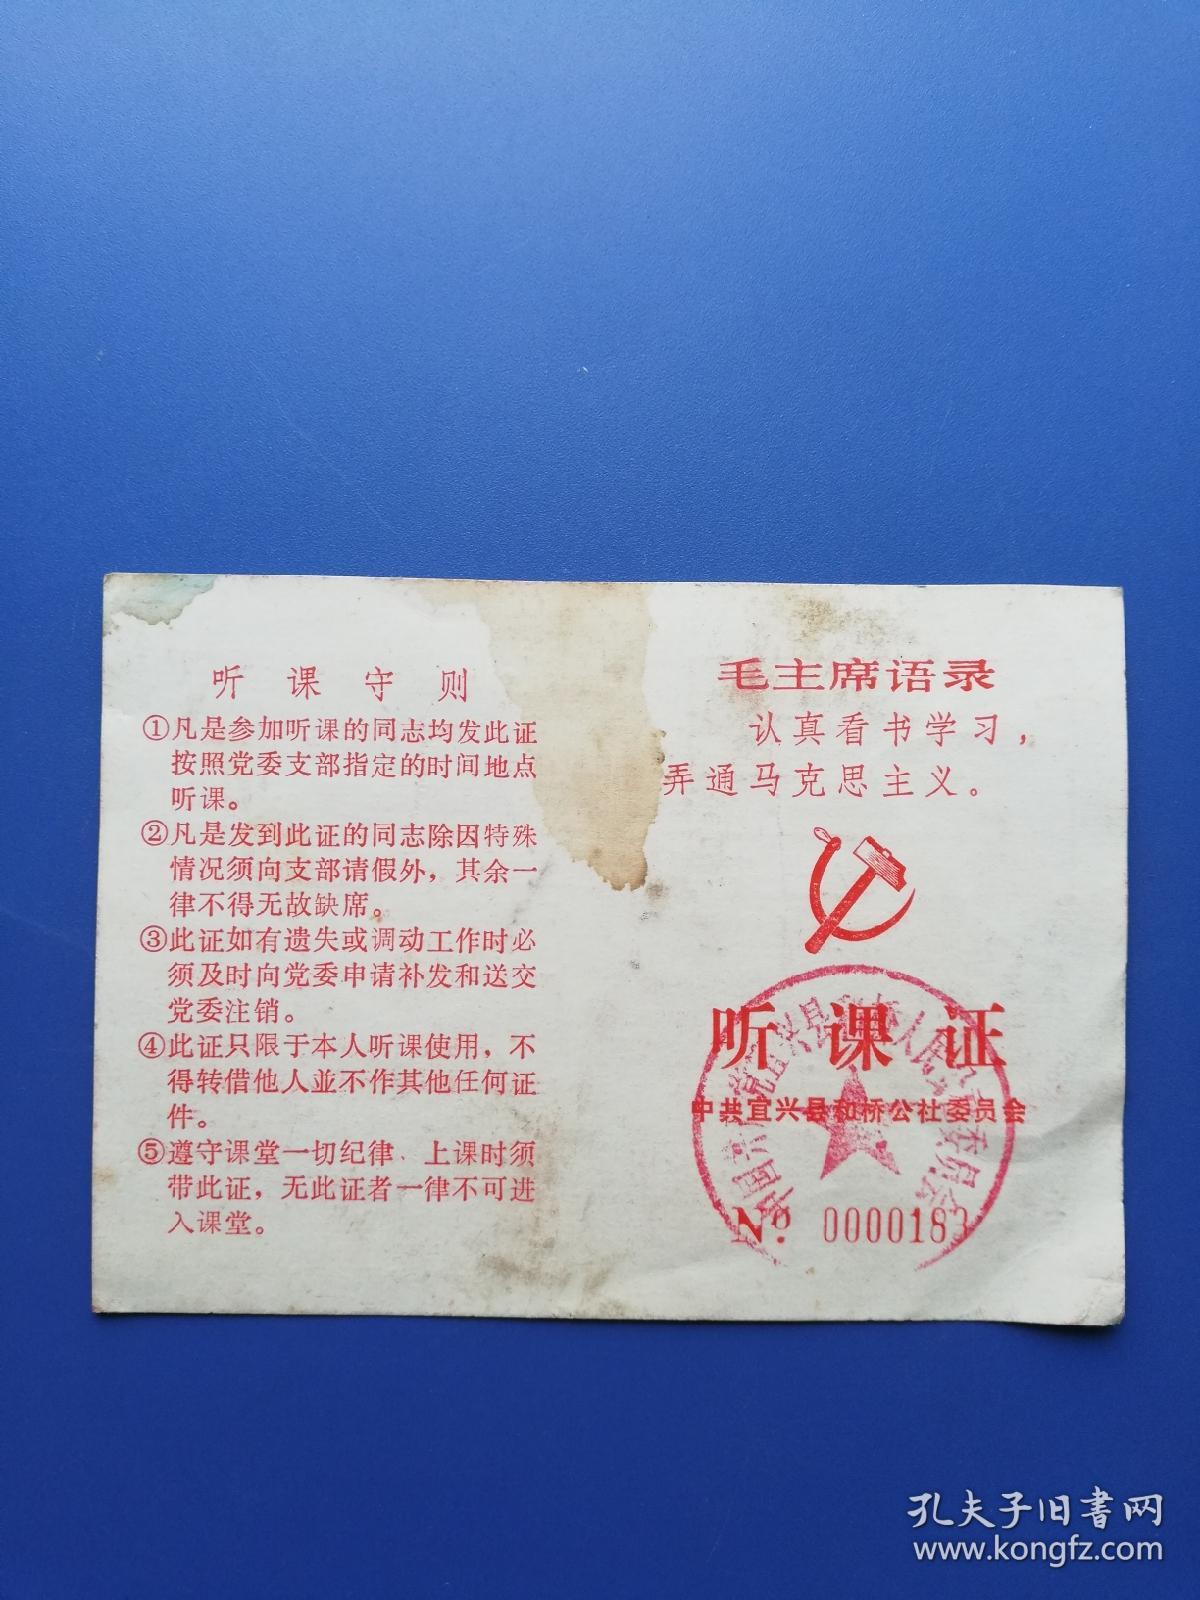 听课守则
①凡是参加听课的同志均发此证
按照党委支部指定的时间地点
听课。
②凡是发到此证的同志除因特殊
情况须向支部请假外，其余一
律不得无故缺席。
③此证如有遗失或调动工作时必
须及时向党委申请补发和送交
党委注销。
④此证只限于本人听课使用，不
得转借他人並不作其他任何证
件。
⑤遵守课堂一切纪律、上课时须
带此证，无此证者一律不可进
入课堂。
毛主席语录
认真看书学习，
弄通马克思主义。
听课证
中共宜兴县和桥公社委员会
№ 0000183
孔夫子旧书网
www.kongfz.com